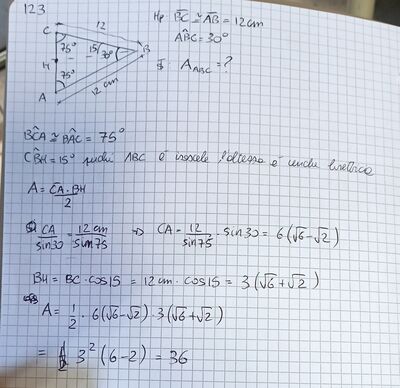 123
12
Hp BC ≅ AB = 12cm
AB̂C = 30°
C
75°
15
30°
B
H
75°
A
12 cm
A_ABC = ?
BĈA ≅ BÂC = 75°
CB̂H = 15° poiché ABC è isoscele l'altezza è anche bisettrice
A = CA · BH / 2
CA / sin30 = 12cm / sin75 ⇒ CA = 12 / sin75 · sin30 = 6(√6-√2)
BH = BC · cos15 = 12cm · cos15 = 3(√6+√2)
A = 1/2 · 6(√6-√2) · 3(√6+√2)
= 3²(6-2) = 36